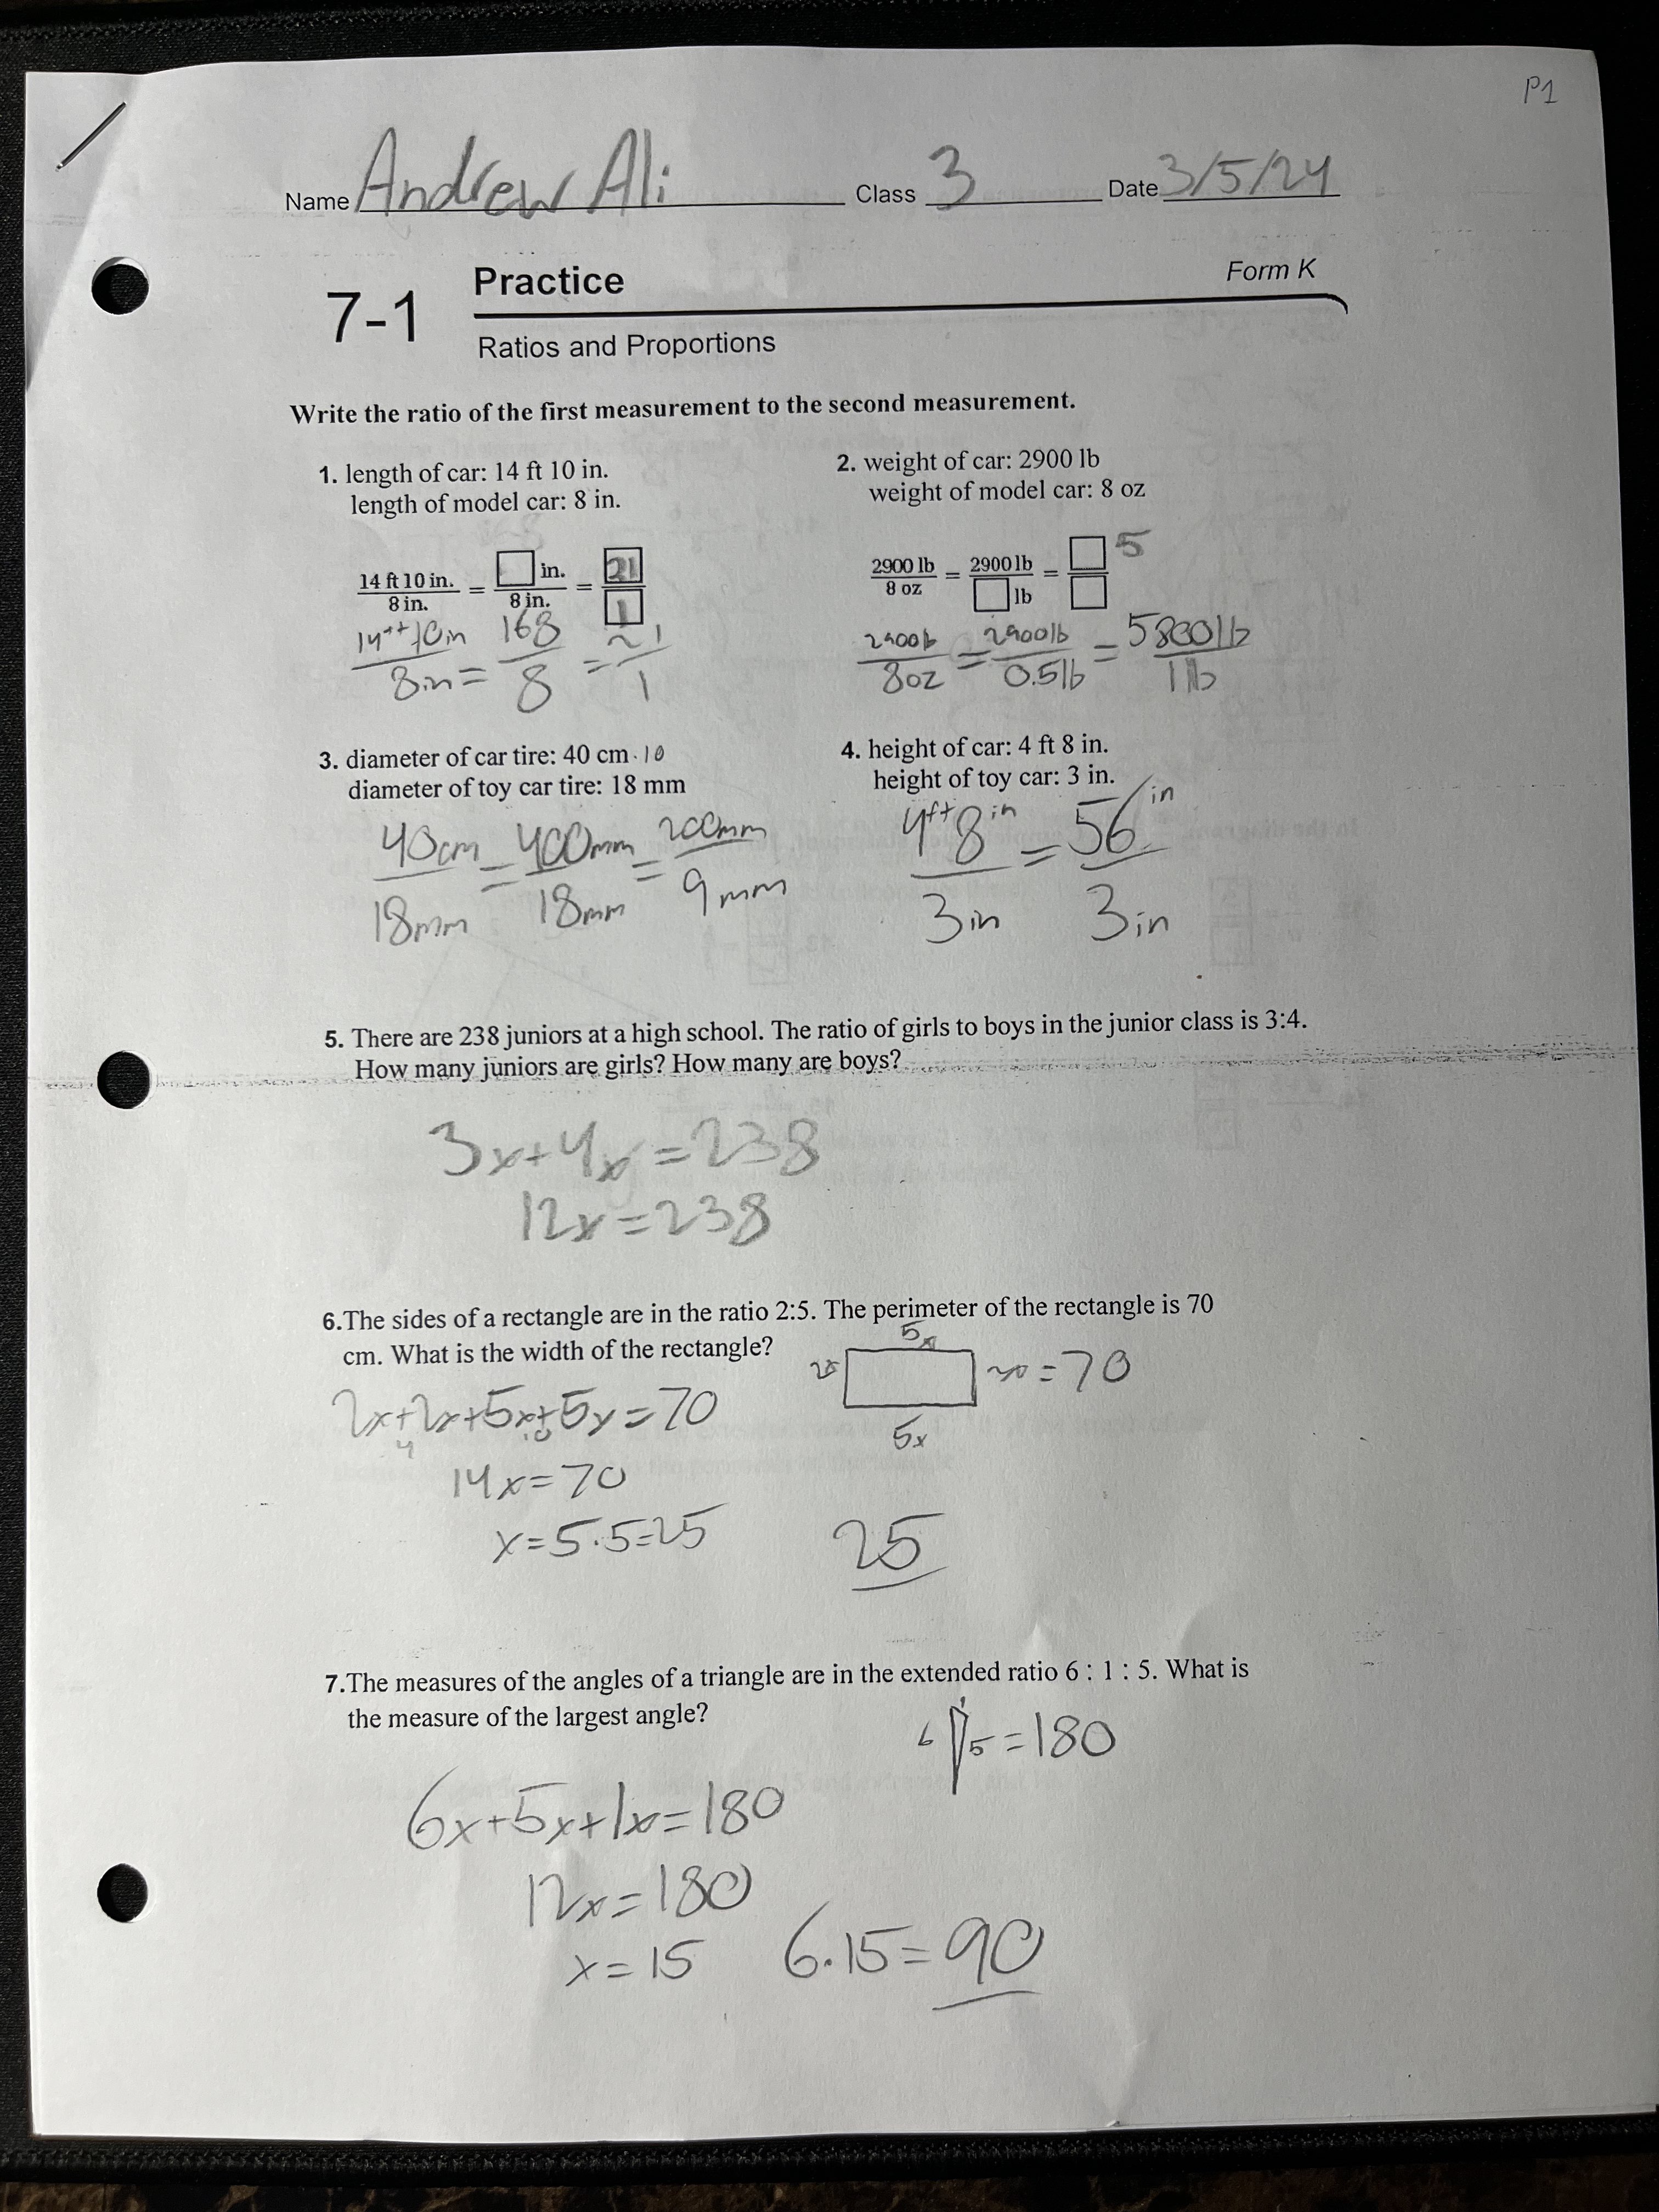 P1
Name Andrew Ali Class 3 Date 3/5/24
7-1 Practice Form K
Ratios and Proportions
Write the ratio of the first measurement to the second measurement.
1. length of car: 14 ft 10 in.
length of model car: 8 in.
14 ft 10 in. / 8 in. = □ in. / 8 in. = 21 / 1
14ft 10in / 8in = 168 / 8 = 21 / 1
2. weight of car: 2900 lb
weight of model car: 8 oz
2900 lb / 8 oz = 2900 lb / □ lb = □ / □ 5
2900lb / 8oz = 2900lb / 0.5lb = 5800lb / 1lb
3. diameter of car tire: 40 cm · 10
diameter of toy car tire: 18 mm
40cm / 18mm = 400mm / 18mm = 200mm / 9mm
4. height of car: 4 ft 8 in.
height of toy car: 3 in.
4ft 8in / 3in = 56in / 3in
5. There are 238 juniors at a high school. The ratio of girls to boys in the junior class is 3:4.
How many juniors are girls? How many are boys?
3x+4x=238
12x=238
6.The sides of a rectangle are in the ratio 2:5. The perimeter of the rectangle is 70
cm. What is the width of the rectangle?
5x
2x 2x =70
5x
2x+2x+5x+5x=70
4 10
14x=70
x=5·5=25
25
7.The measures of the angles of a triangle are in the extended ratio 6 : 1 : 5. What is
the measure of the largest angle?
1
6 5 =180
6x+5x+1x=180
12x=180
x=15 6·15=90